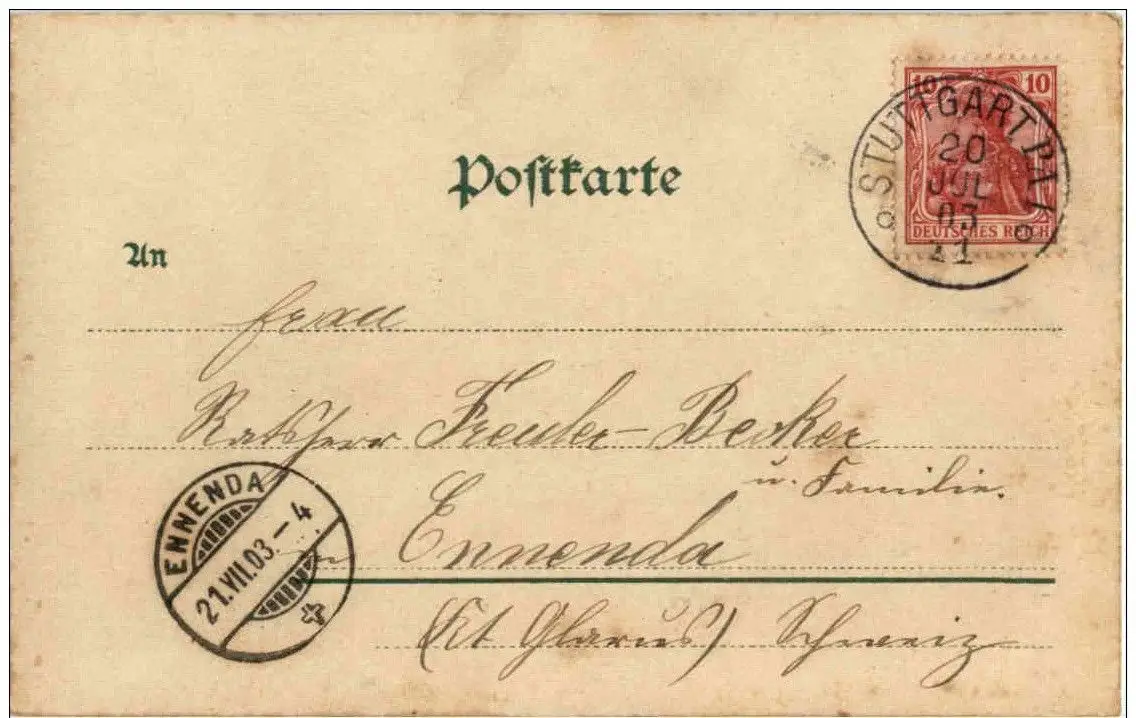 10 10
DEUTSCHES REICH
STUTTGART. P.A.1
20
JUL
03
11
Postkarte
An
Frau
Ratsherr Freuler-Becker
u. Familie.
in Ennenda
(Kt. Glarus) Schweiz
ENNENDA
21.VII.03.-4